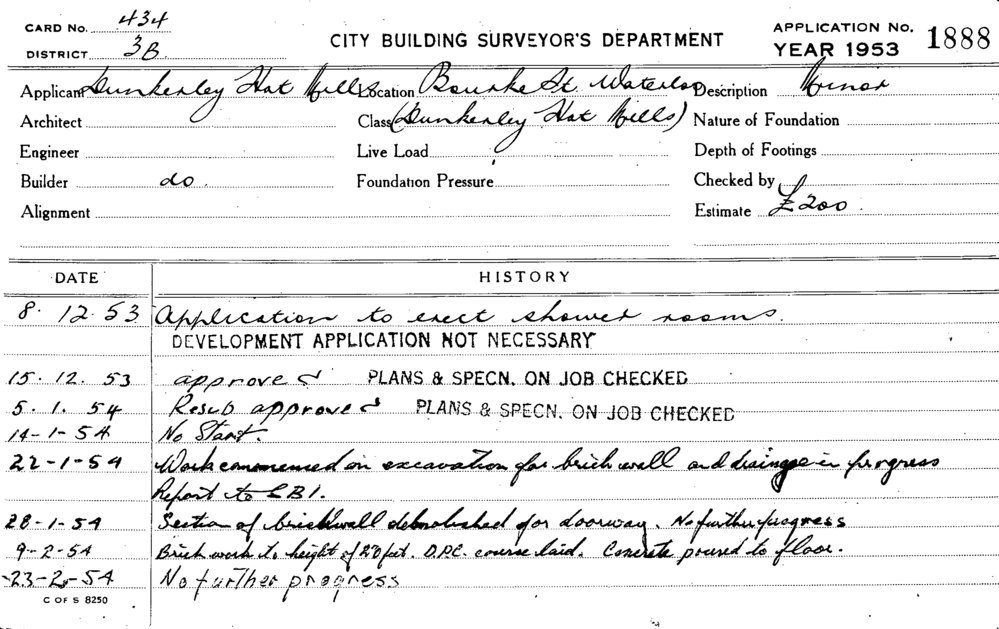 CARD No. 434
DISTRICT 3B.
CITY BUILDING SURVEYOR'S DEPARTMENT
APPLICATION No. 1888
YEAR 1953
Applicant Dunkerley Hat Mills Location Bourke St. Waterloo Description Minor
Architect Class (Dunkerley Hat Mills) Nature of Foundation
Engineer Live Load Depth of Footings
Builder do. Foundation Pressure Checked by
Alignment Estimate £200.
DATE HISTORY
8. 12. 53 Application to erect shower rooms.
DEVELOPMENT APPLICATION NOT NECESSARY
15. 12. 53 approved PLANS & SPECN. ON JOB CHECKED
5. 1. 54 Resub approved PLANS & SPECN. ON JOB CHECKED
14-1-54 No Start.
22-1-54 Work commenced on excavation for brick wall and drainage in progress
Report to
28-1-54 Section of brickwall demolished for doorway. No further progress
9-2-54 Brick work to height of feet. D.P.C. course laid. Concrete poured to floor.
23-2-54 No further progress
C OF S 8250